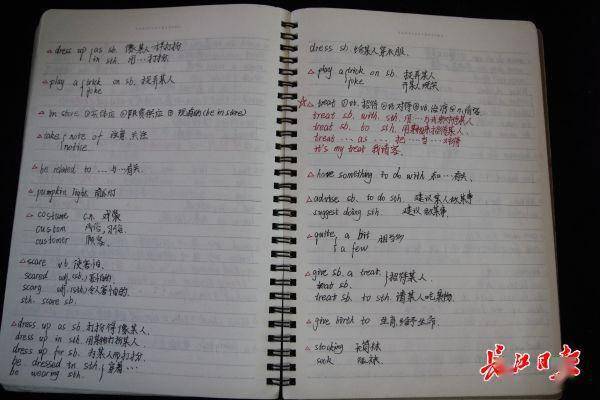 dress up as sb. 像某人一样打扮
in sth. 用…打扮
play a trick on sb. 捉弄某人
joke
in store
take note of 注意 关注
notice
be related to …与…有关
pumpkin light 南瓜灯
costume c.n. 戏装
custom 风俗，习俗
customer 顾客
scare vt. 使害怕
scared adj. (sb.) 害怕的
scary adj. (sth) 令人害怕的
sth. scare sb.
dress up as sb. 打扮得像某人.
dress up in sth. 用某物打扮某人.
dress up for sb. 为某人而打扮.
be dressed in sth. 穿着…
be wearing sth.
dress sb. 给某人穿衣服.
play a trick on sb. 捉弄某人
joke 开某人玩笑
treat ①vt. 招待 ②vt. 对待 ③vt. 治疗 ④n. 请客
treat sb. with sth. 用…与某来对待某人
treat sb. to sth. 用某物来招待某人.
treat … as … 把…当…对待
it's my treat 我请客.
have something to do with 和…有关.
advise sb. to do sth. 建议某人做某事
suggest doing sth. 建议做某事.
quite a bit 相当多
a few
give sb. a treat. 招待某人.
treat sb.
treat sb. to sth. 请某人吃某物.
give birth to 生育 给予生命.
stocking 长筒袜
sock 短袜.
长江日报